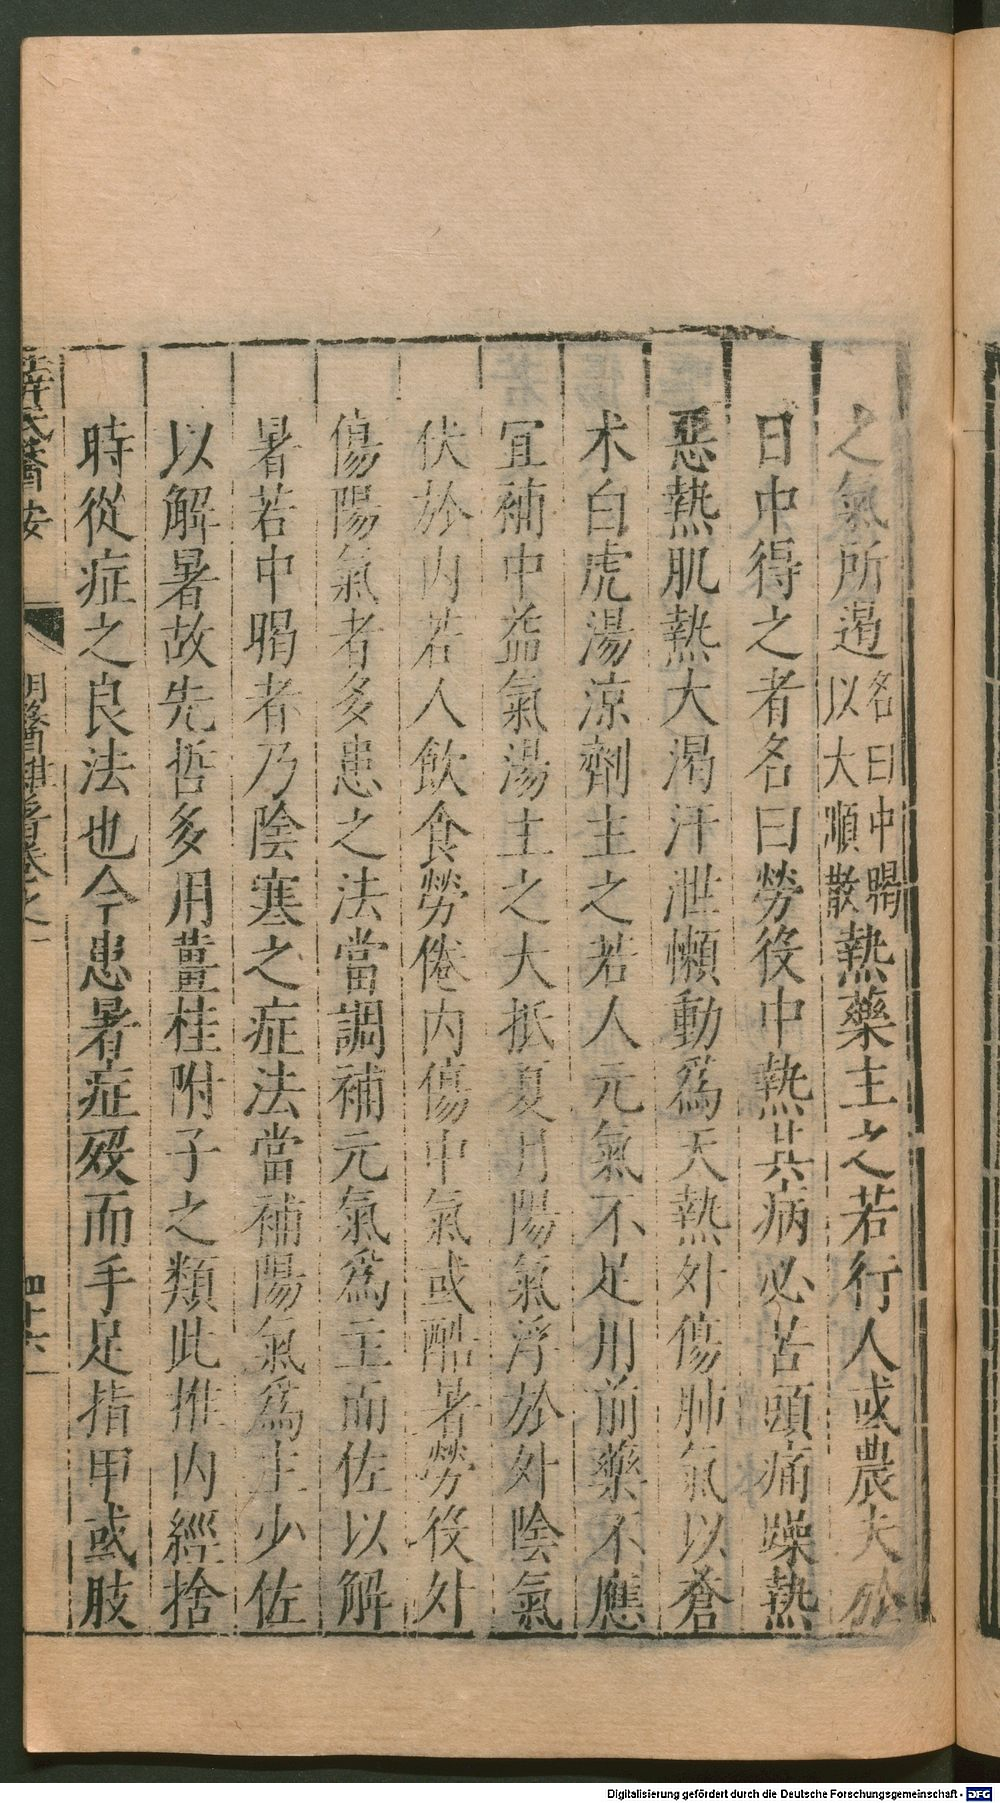 之氣所遏名曰中暍以大順散熱藥主之若行人或農夫於
日中得之者名曰勞役中熱其病必苦頭痛躁熱
惡熱肌熱大渴汗泄懶動爲天熱外傷肺氣以蒼
术白虎湯涼劑主之若人元氣不足用前藥不應
宜補中益氣湯主之大抵夏月陽氣浮於外陰氣
伏於内若人飲食勞倦内傷中氣或酷暑勞役外
傷陽氣者多患之法當調補元氣爲主而佐以解
暑若中暍者乃陰寒之症法當補陽氣爲主少佐
以解暑故先哲多用薑桂附子之類此推内經捨
時從症之良法也今患暑症歿而手足指甲或肢
薛氏醫按 明醫雜著卷之一 四十六
Digitalisierung gefördert durch die Deutsche Forschungsgemeinschaft - DFG